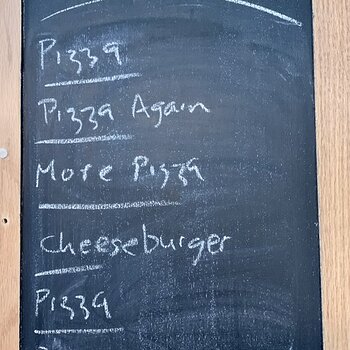 Pizza
Pizza Again
More Pizza
cheeseburger
Pizza